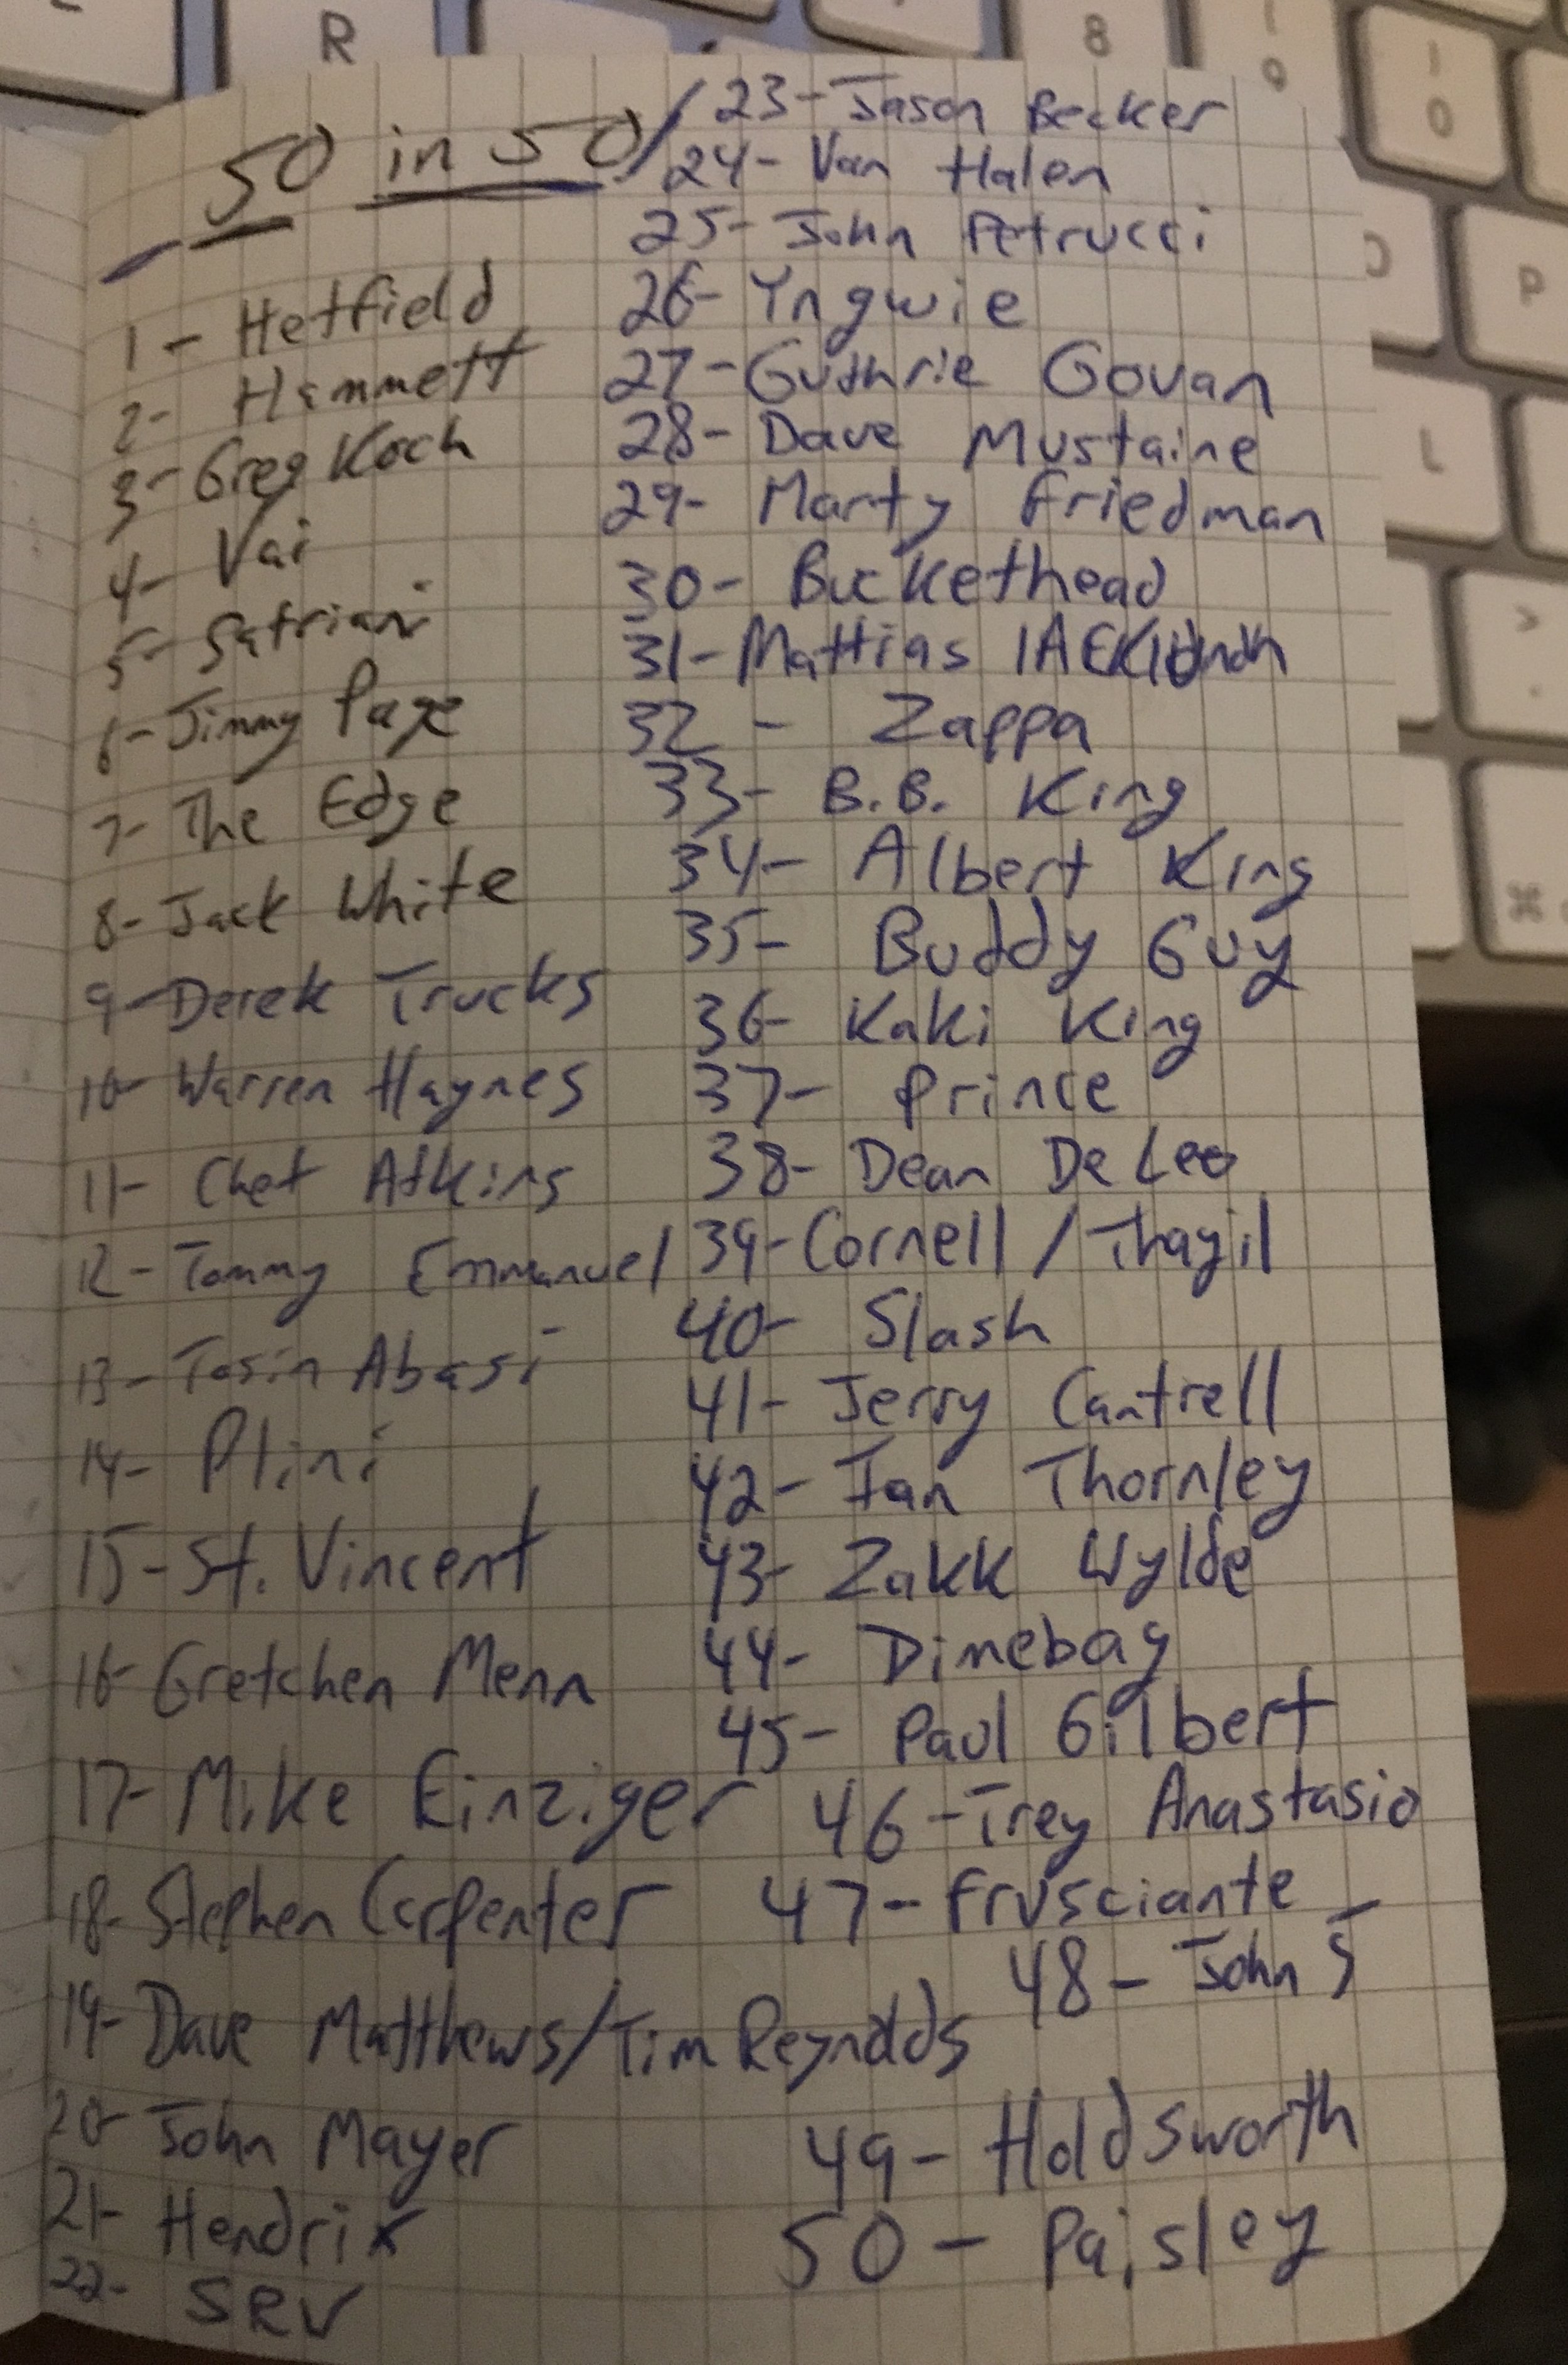 50 in 50
1- Hetfield
2- Hammett
3- Greg Koch
4- Vai
5- Satriani
6- Jimmy Page
7- The Edge
8- Jack White
9- Derek Trucks
10- Warren Haynes
11- Chet Atkins
12- Tommy Emmanuel
13- Tosin Abasi
14- Plini
15- St. Vincent
16- Gretchen Menn
17- Mike Einziger
18- Stephen Carpenter
19- Dave Matthews/Tim Reynolds
20- John Mayer
21- Hendrix
22- SRV
23- Jason Becker
24- Van Halen
25- John Petrucci
26- Yngwie
27- Guthrie Govan
28- Dave Mustaine
29- Marty Friedman
30- Buckethead
31- Mattias
32 - Zappa
33- B.B. King
34- Albert King
35- Buddy Guy
36- Kaki King
37- Prince
38- Dean DeLeo
39- Cornell / Thayil
40- Slash
41- Jerry Cantrell
42- Ian Thornley
43- Zakk Wylde
44- Dimebag
45- Paul Gilbert
46- Trey Anastasio
47- Frusciante
48- John 5
49- Holdsworth
50- Paisley
R
8
9
0
P
L
>
.
⌘